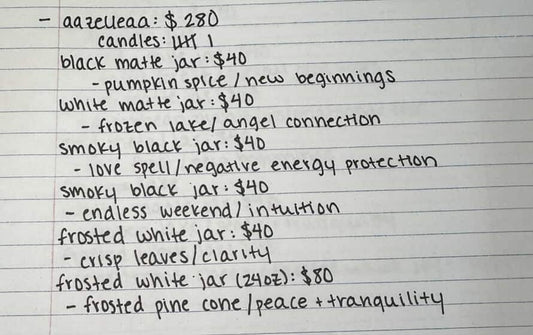 - aazelleaa: $280
candles: 𝍸 1
black matte jar: $40
- pumpkin spice / new beginnings
white matte jar: $40
- frozen lake / angel connection
smoky black jar: $40
- love spell / negative energy protection
smoky black jar: $40
- endless weekend / intuition
frosted white jar: $40
- crisp leaves / clarity
frosted white jar (24oz): $80
- frosted pine cone / peace + tranquility